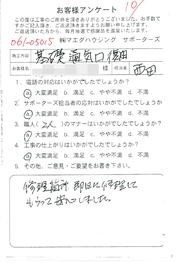 お客様アンケート
10/
この度は工事のご用命を頂きありがとうございました。お手数で
すがご記入頂き、ご返送頂きますようお願い申し上げます。
ご返送頂いた方より、毎月抽選で感謝品を進呈いたします。
061-05015 ㈱マエダハウジング サポーターズ
工事内容 基礎 換気口 復旧
様 担当者 西田
1. 電話の対応はいかがでしたでしょうか?
a 大変満足 b. 満足 c. やや不満 d. 不満
2. サポーターズ担当者の対応はいかがでしたでしょうか?
a 大変満足 b. 満足 c. やや不満 d. 不満
3. 職人( さん)のマナーはいかがでしたでしょうか?
a 大変満足 b. 満足 c. やや不満 d. 不満
4. 工事の仕上がりはいかがでしたでしょうか?
a 大変満足 b. 満足 c. やや不満 d. 不満
5. その他、ご意見・ご要望をお書き下さい。
修理箇所 即日に修理して
もらって 助かりました。